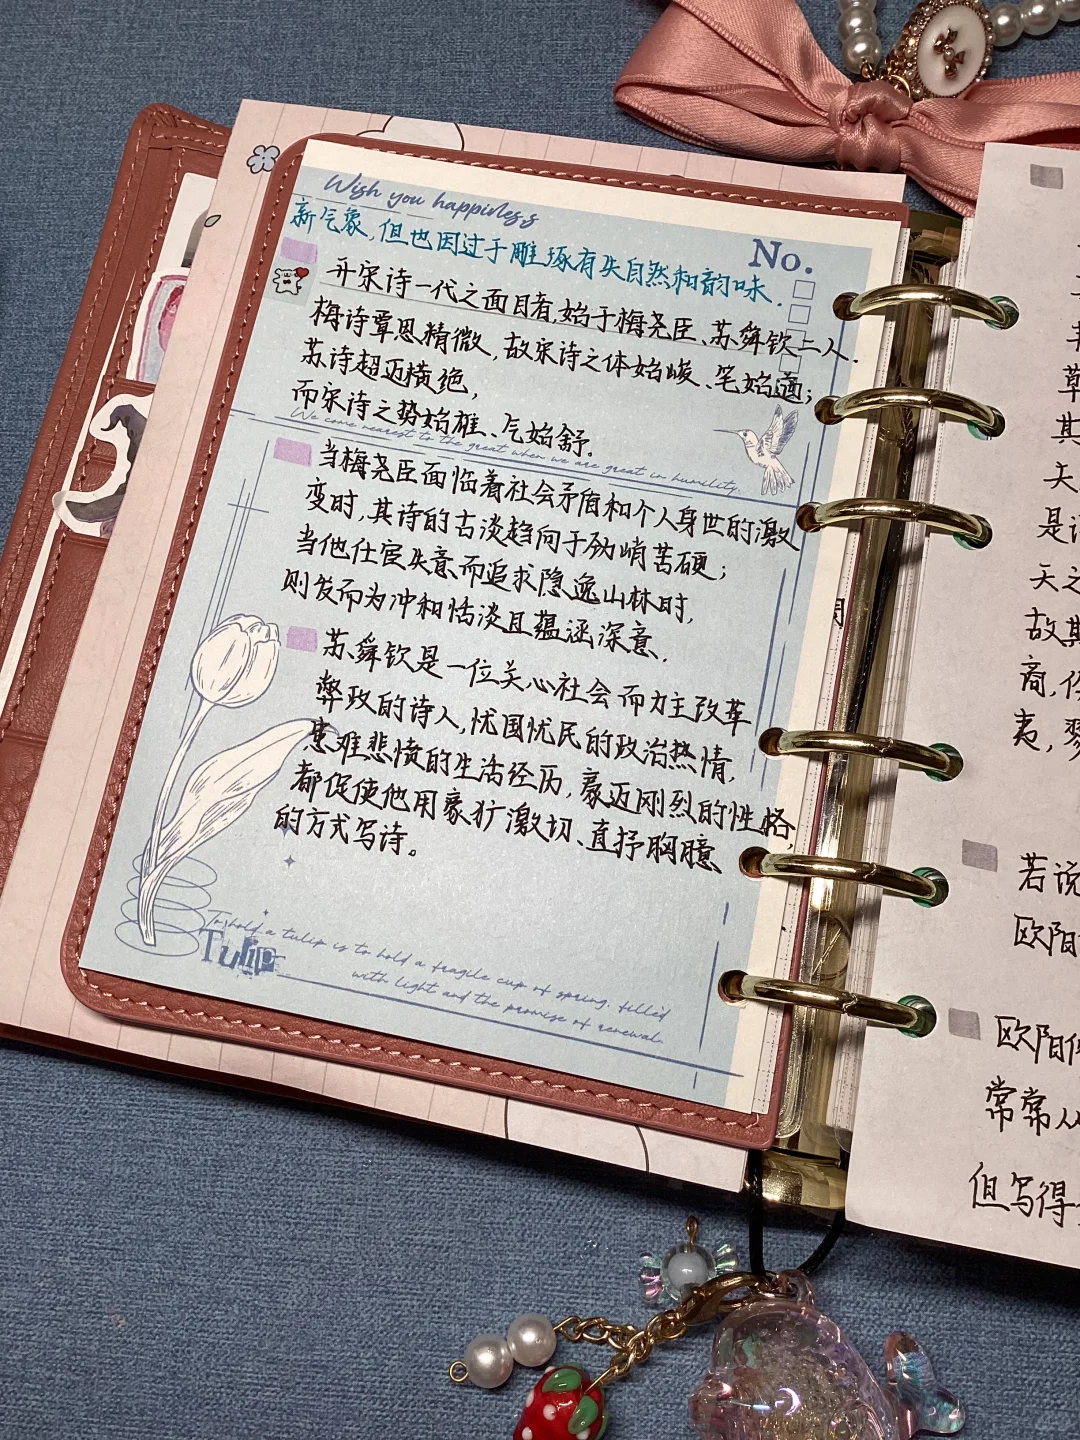 Wish you happiness
No.
新气象,但也因过于雕琢有失自然和韵味.
开宋诗一代之面目者,始于梅尧臣、苏舜钦二人.
梅诗覃思精微,故宋诗之体始峻、笔始遒;
苏诗超迈横绝,
而宋诗之势始雄、气始舒。
We come nearest to the great when we are great in humility.
当梅尧臣面临着社会矛盾和个人身世的激
变时,其诗的古淡趋向于劲峭苦硬;
当他仕宦失意而追求隐逸山林时,
则发而为冲和恬淡且蕴涵深意.
苏舜钦是一位关心社会而力主改革
弊政的诗人,忧国忧民的政治热情,
患难悲愤的生活经历,豪迈刚烈的性格,
都促使他用豪犷激切、直抒胸臆
的方式写诗。
To hold a tulip is to hold a fragile cup of spring, filled
Tulip
with light and the promise of renewal.
草
其
天
是
天之
故其
商,
夷,
若说
欧阳
欧阳
常常从
但写得